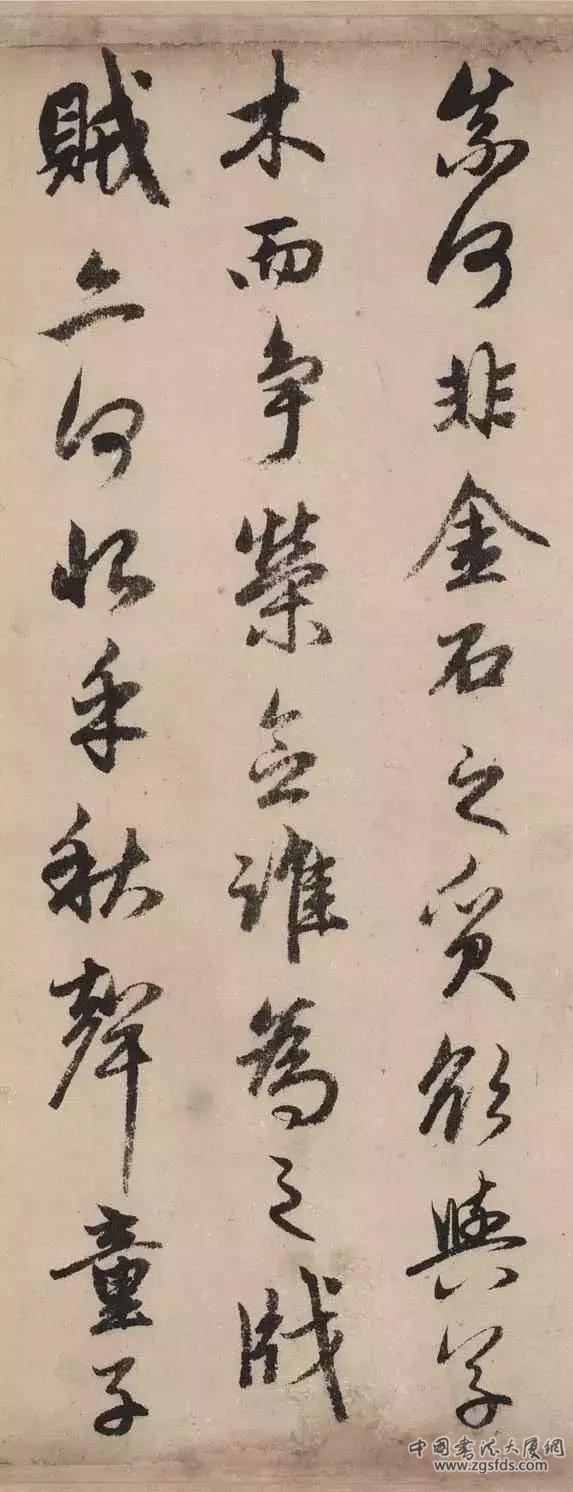 柰何非金石之質欲與草
木而争榮念誰為之戕
賊亦何恨乎秋聲童子
中国书法大厦網
www.zgsfds.com